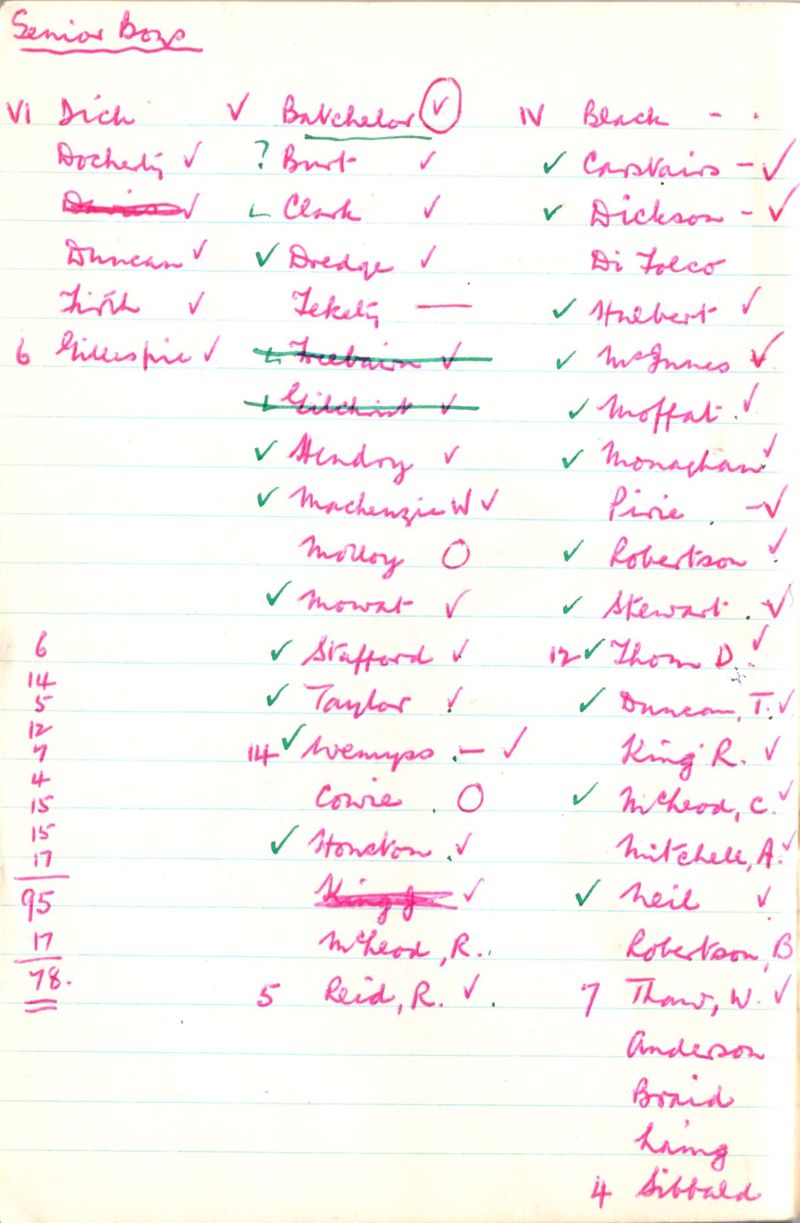 Senior Boys
VI Dick
Docherty ✓
Davies ✓
Duncan ✓
Firth ✓
6 Gillespie ✓
6
14
5
12
7
4
15
15
17
95
17
78.
V Batchelor ✓
? Burt ✓
Clark ✓
✓ Dredge ✓
Fekety —
Freebairn ✓
Gilchrist ✓
✓ Hendry ✓
✓ Mackenzie W ✓
Molloy O
✓ Mowat ✓
✓ Stafford ✓
✓ Taylor ✓
14 ✓ Wemyss .— ✓
Cowie . O
✓ Houston .✓
King J ✓
McLeod, R..
5 Reid, R. ✓ .
IV Black - .
✓ Carstairs - ✓
✓ Dickson - ✓
Di Folco
✓ Hulbert ✓
✓ McInnes ✓
✓ Moffat . ✓
✓ Monaghan ✓
Pirie - ✓
✓ Robertson ✓
✓ Stewart . ✓
12 ✓ Thom D. ✓
✓ Duncan, T. ✓
King R. ✓
✓ McLeod, C. ✓
Mitchell, A. ✓
✓ Neil ✓
Robertson, B
7 Thaw, W. ✓
Anderson
Braid
Laing
4 Sibbald